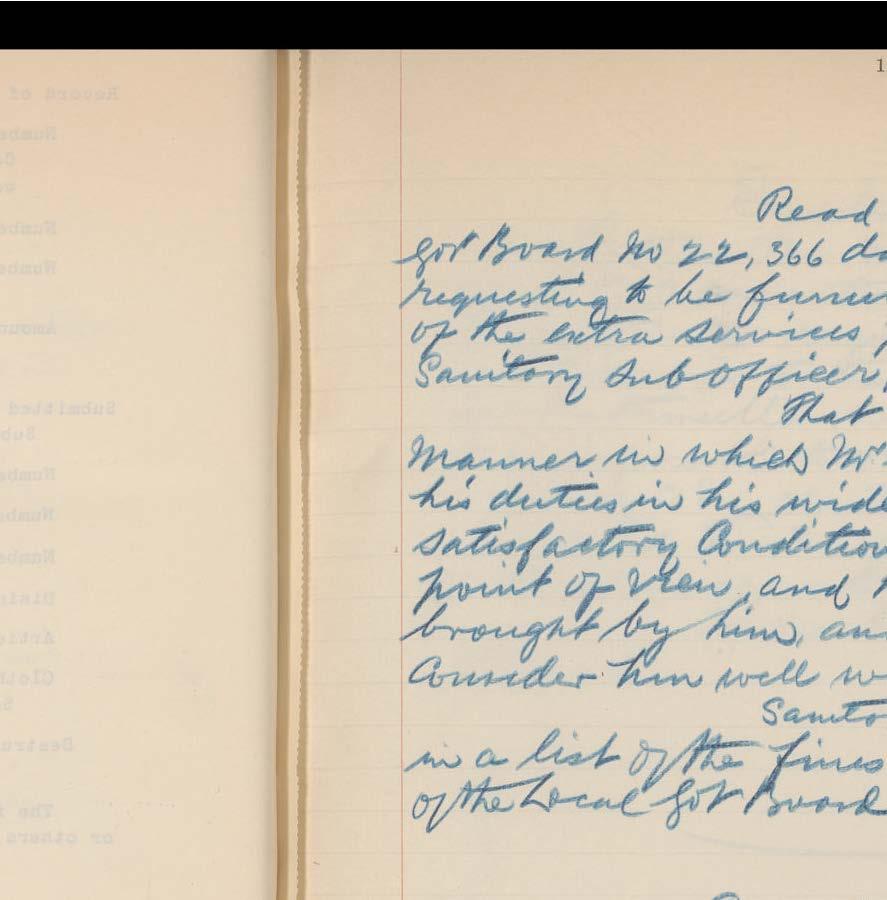 1
Read
Govt Board No 22,366 da
requesting to be furni
of the extra services
Sanitory Sub Officer,
That
Manner in which Mr
his duties in his wide
satisfactory Condition
point of view, and
brought by him, an
Consider him well w
Sanito
in a list of the fines
of the Local Govt Board
Record of
Numbe
Numbe
Numbe
Amoun
Submitted
Sub
Numbe
Numbe
Numbe
Disin
Artic
Cloth
Destru
The f
or others